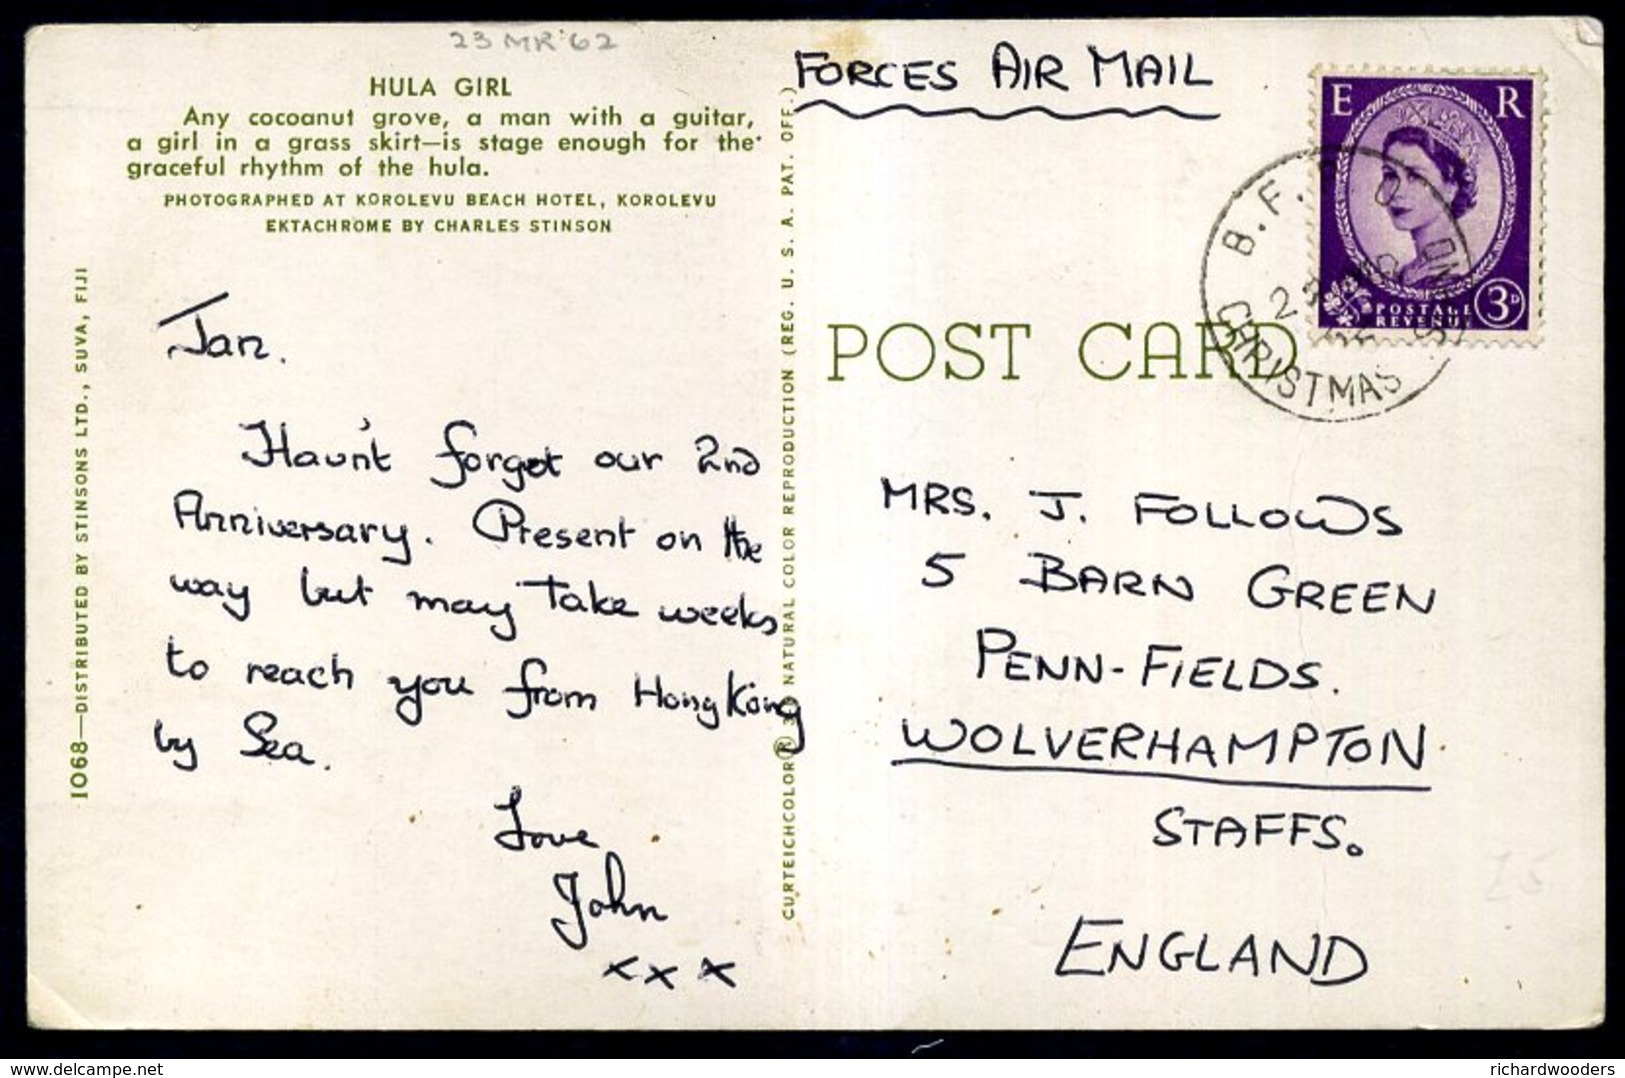 23 MR 62
HULA GIRL
Any cocoanut grove, a man with a guitar,
a girl in a grass skirt—is stage enough for the
graceful rhythm of the hula.
PHOTOGRAPHED AT KOROLEVU BEACH HOTEL, KOROLEVU
EKTACHROME BY CHARLES STINSON
1068—DISTRIBUTED BY STINSONS LTD., SUVA, FIJI
Jan.
Havn't forgot our 2nd
Anniversary. Present on the
way but may take weeks
to reach you from Hong Kong
by Sea.
Love
John
x x x
CURTEICHCOLOR® 3D NATURAL COLOR REPRODUCTION (REG. U. S. A. PAT. OFF.)
FORCES AIR MAIL
E R
POSTAGE
REVENUE
3D
B.F.
CHRISTMAS
POST CARD
MRS. J. FOLLOWS
5 BARN GREEN
PENN-FIELDS.
WOLVERHAMPTON
STAFFS.
ENGLAND
delcampe.net
richardwooders